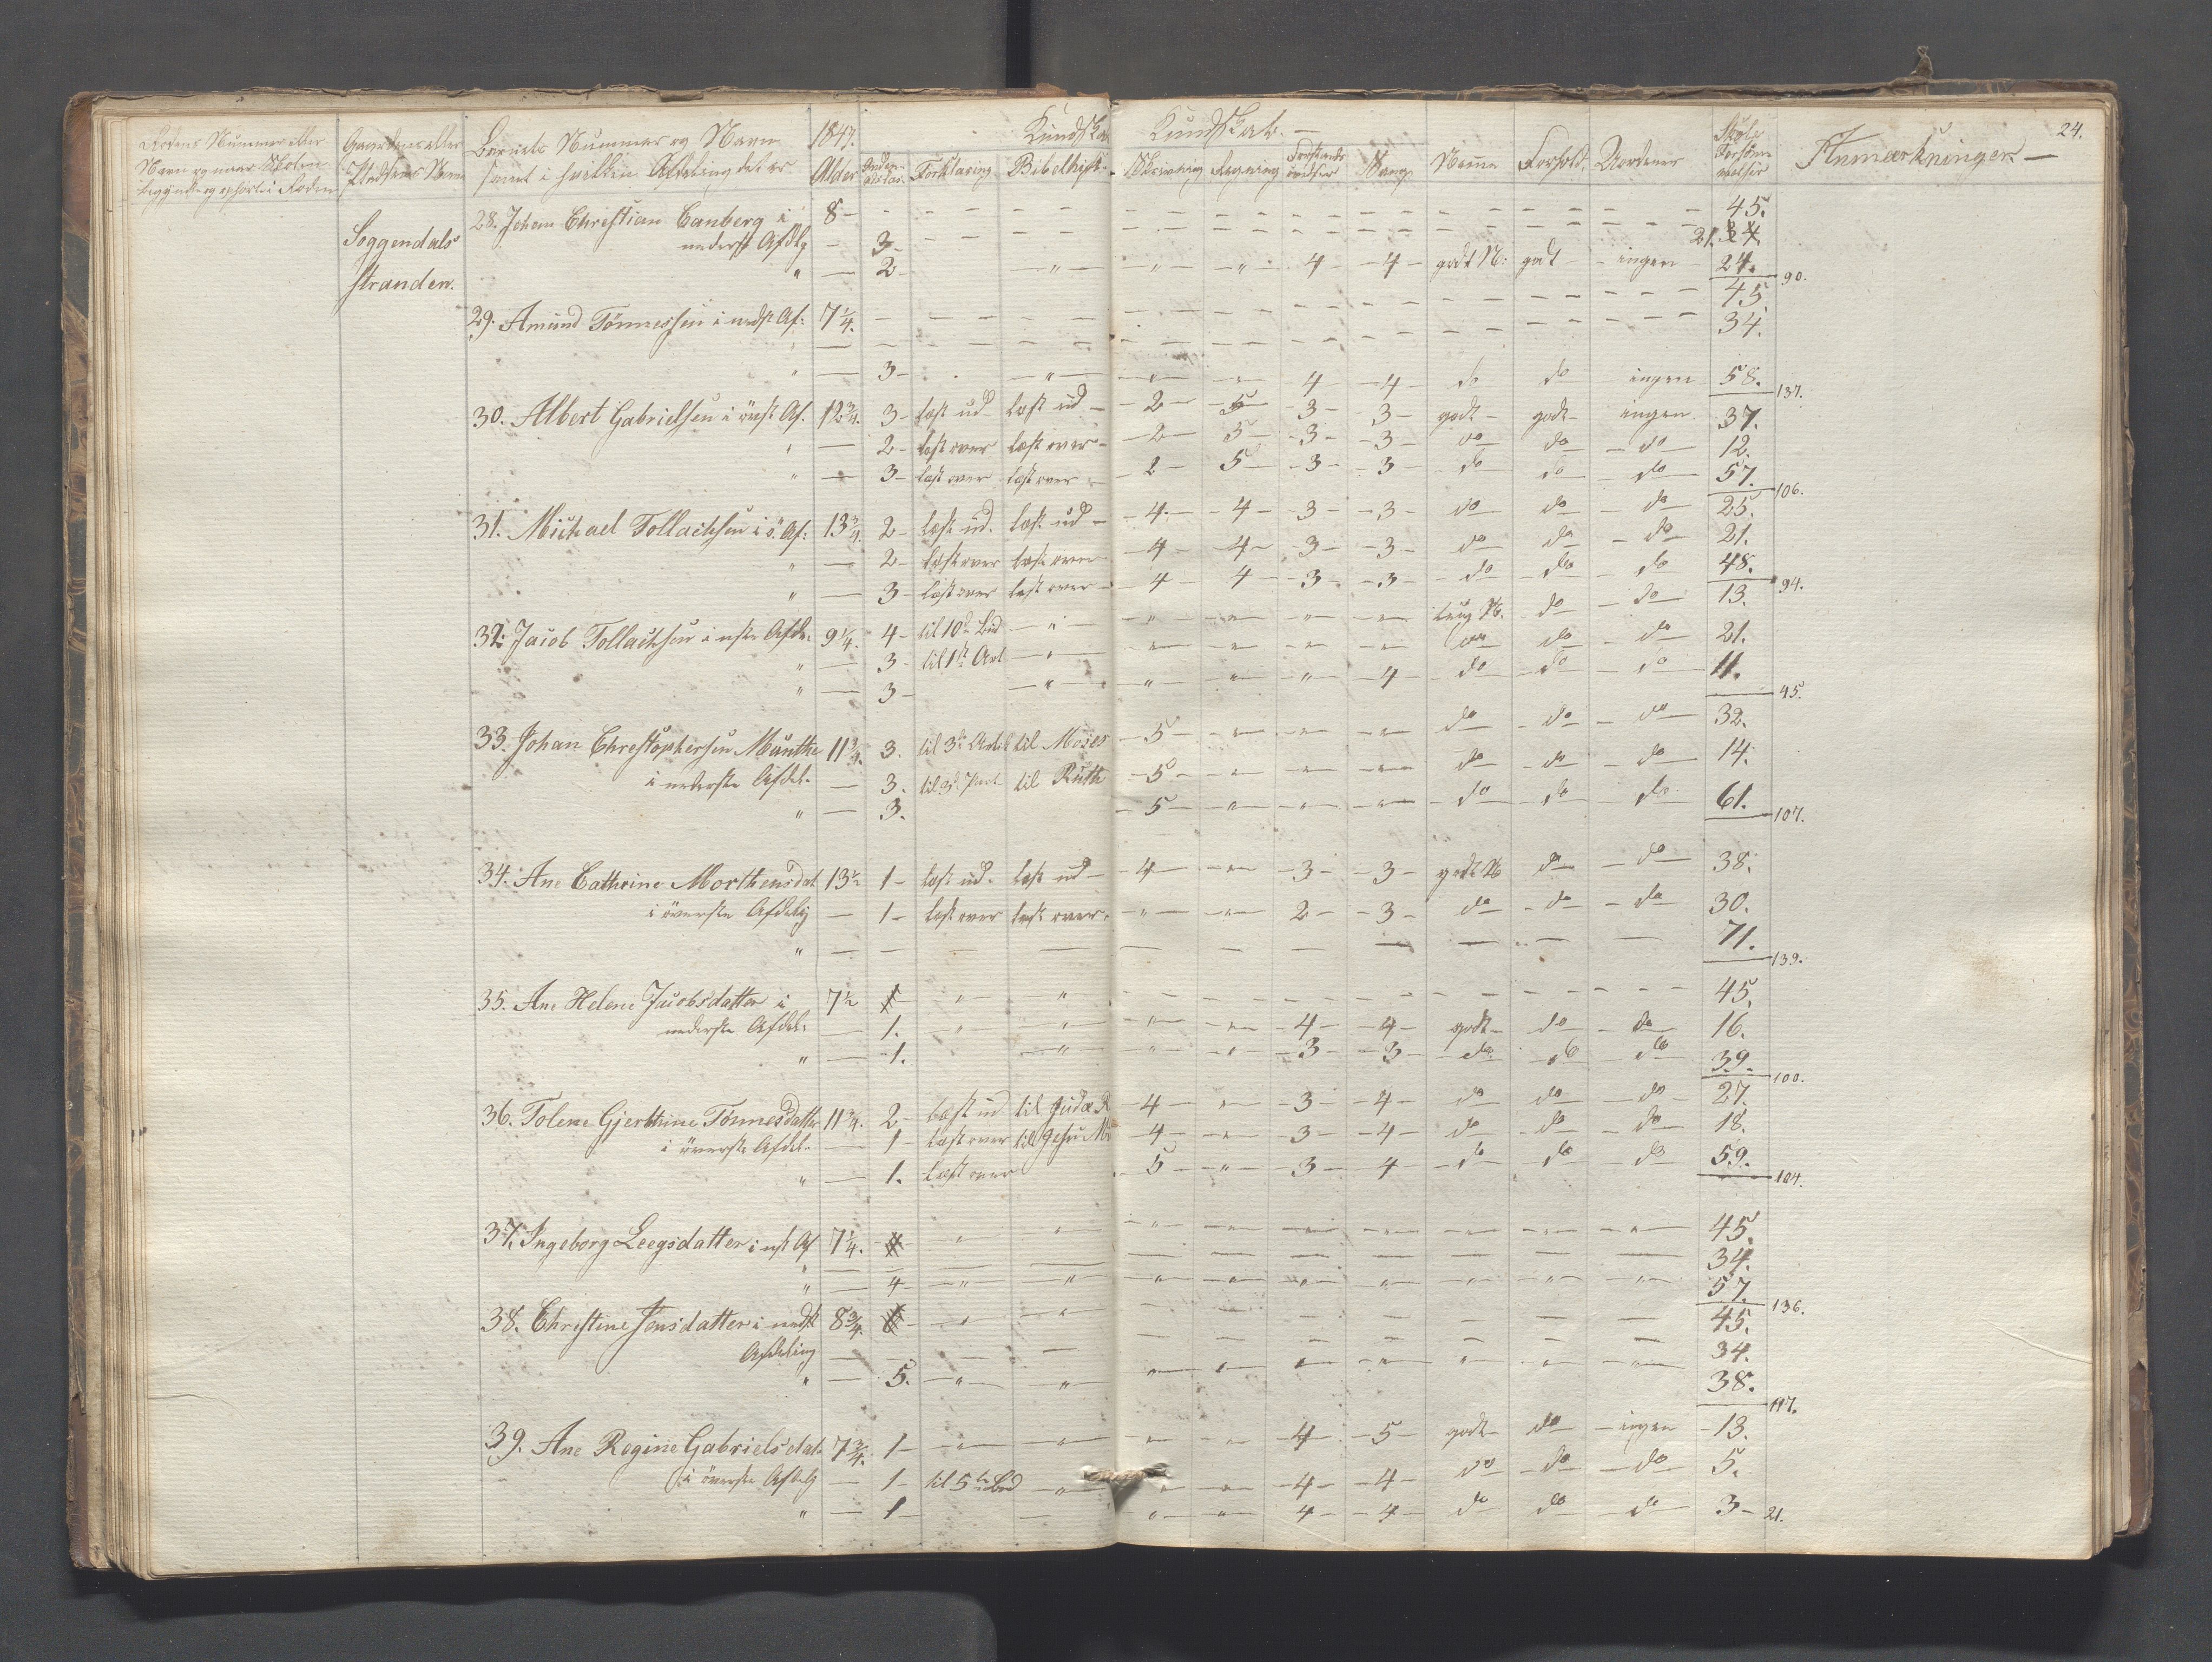 Rodens Nummer eller Gaardens eller Barnets Nummer og Navn 1847. Kundskab Kundskab. — Skole 24.
Navn og naar Skolen Pladsens Navn samt i hvilken Afdeling det er Alder Forklaring Bibelhist. Skrivning Regning Sang Nemme Forhold Uordener Forsømmelser Anmærkninger —
begyndte og ophørte i Roden
Soggendals
stranden.
28. Johan Christian Canberg i 8 - - - - - 45.
nederste Afdlg — 3 - - - 21. 24.
" — 2 - — " — " — " 4 - 4 - godt N: godt - ingen 24. 90.
29. Amund Tønnessen i nedst Af: 7 1/4. - - - - 45.
" — - - - 34.
" — 3 - — " — " 4 - 4 - do do ingen 58. 137.
30. Albert Gabrielsen i överst Af. 12 3/4. 3 - læst ud læst ud - 2 - 5 - 3 - 3 - godt - godt - ingen 37.
" — 2 - læst over læst over - 2 - 5 - 3 - 3 - do do - do 12.
" — 3 - læst over læst over - 2 - 5 - 3 - 3 - do do - do 57. 106.
31. Michael Tollachsen i ö. Af: 13 3/4. 2 - læst ud. læst ud - 4 - 4 - 3 - 3 - do do - do 25.
" — 2 - læst over læst over - 4 - 4 - 3 - 3 - do do - do 21.
" — 3 - læst over læst over - 4 - 4 - 3 - 3 - do - do - do 48. 94.
32. Jacob Tollachsen i nste Afde. 9 1/4. 4 - til 10de Bud — " — " — " — " — " - do - do 13.
" — 3 - til 1ste Art — " — " — " — " — " do do - do 21.
" — 3 - — " — " — " — " - 4 - do - do - do 11. 45.
33. Johan Christophersen Münthe 11 3/4. 3. til 3de Artik til Moses - 5 - " — " — " do - do - do 32.
i nederste Afdel. — 3. til 3de Part til Ruth - 5 - " — " — " do - do - do 14.
" — 3. - 5 - " — " — " - do - do - do 61. 107.
34. Ane Cathrine Morthensdat 13 1/2 1 - læst ud. læst ud - 4 - " - 3 - 3 - godt N do - do 38.
i överste Afdelg — 1 - læst over læst over. - " — " 2 - 3 - do - do - do 30.
" — — — — — — — — — — — 71. 139.
35. Ane Helene Jacobsdatter i 7 1/2 " " - - - - 45.
nederste Afdel: — 1. " " - " — " - 4 - 4 - godt - do - do 16.
" — 1. — " " — " - 3 - 3 - do - do - do 39. 100.
36. Tolene Gjerthine Tönnesdatter 11 3/4. 2 - læst ud til Judæ R - 4 - " - 3 - 4 - do do - do 27.
i överste Afdel. — 1 - læst over til Jesu Mi - 4 - " - 3 - 4 - do - do - do 18.
" — 1. læst over - 5 - " - 3 - 4 - do - do - do 59. 104.
37. Ingeborg Leegsdatter i nst Af 7 1/4. " " - " — " — " — " — " — " — " 45.
" — — — — — — — — — — 34.
" — 4 - " — " - " — " — " — " — " — " — " 57. 136.
38. Christine Jensdatter i nedst 8 3/4. " " — — — — — — — 45.
Afdeling — — — — — — — — — — 34.
" — 5. " — " - " — " — " — " — " — " — " 38. 117.
39. Ane Regine Gabrielsdat. 7 3/4. 1 - " — " — " — " - 4 - 5 - godt - do - ingen - 13.
i överste Afdelg — 1 - til 5te Bud — " — " — " - 4 - 4 - do - do - do 5.
" — 1 - — — " — " 4 - 4 - do do - do 3 - 21.